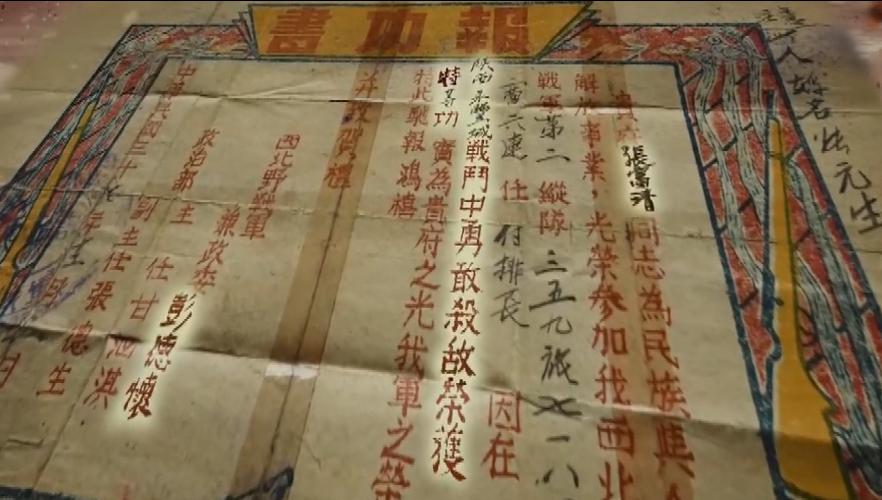 報功書
人姓名
貴府張富清同志為民族與人
解放事業，光榮參加我西北
戰軍第二縱隊三五九旅七一八
六連任付排長因在
陝西永豐城戰鬥中勇敢殺敵榮獲
特等功實為貴府之光我軍之榮
特此馳報鴻禧
并致賀禮
西北野戰軍
兼政委彭德懷
政治部主任甘泗淇
副主任張德生
中華民國三十七年月